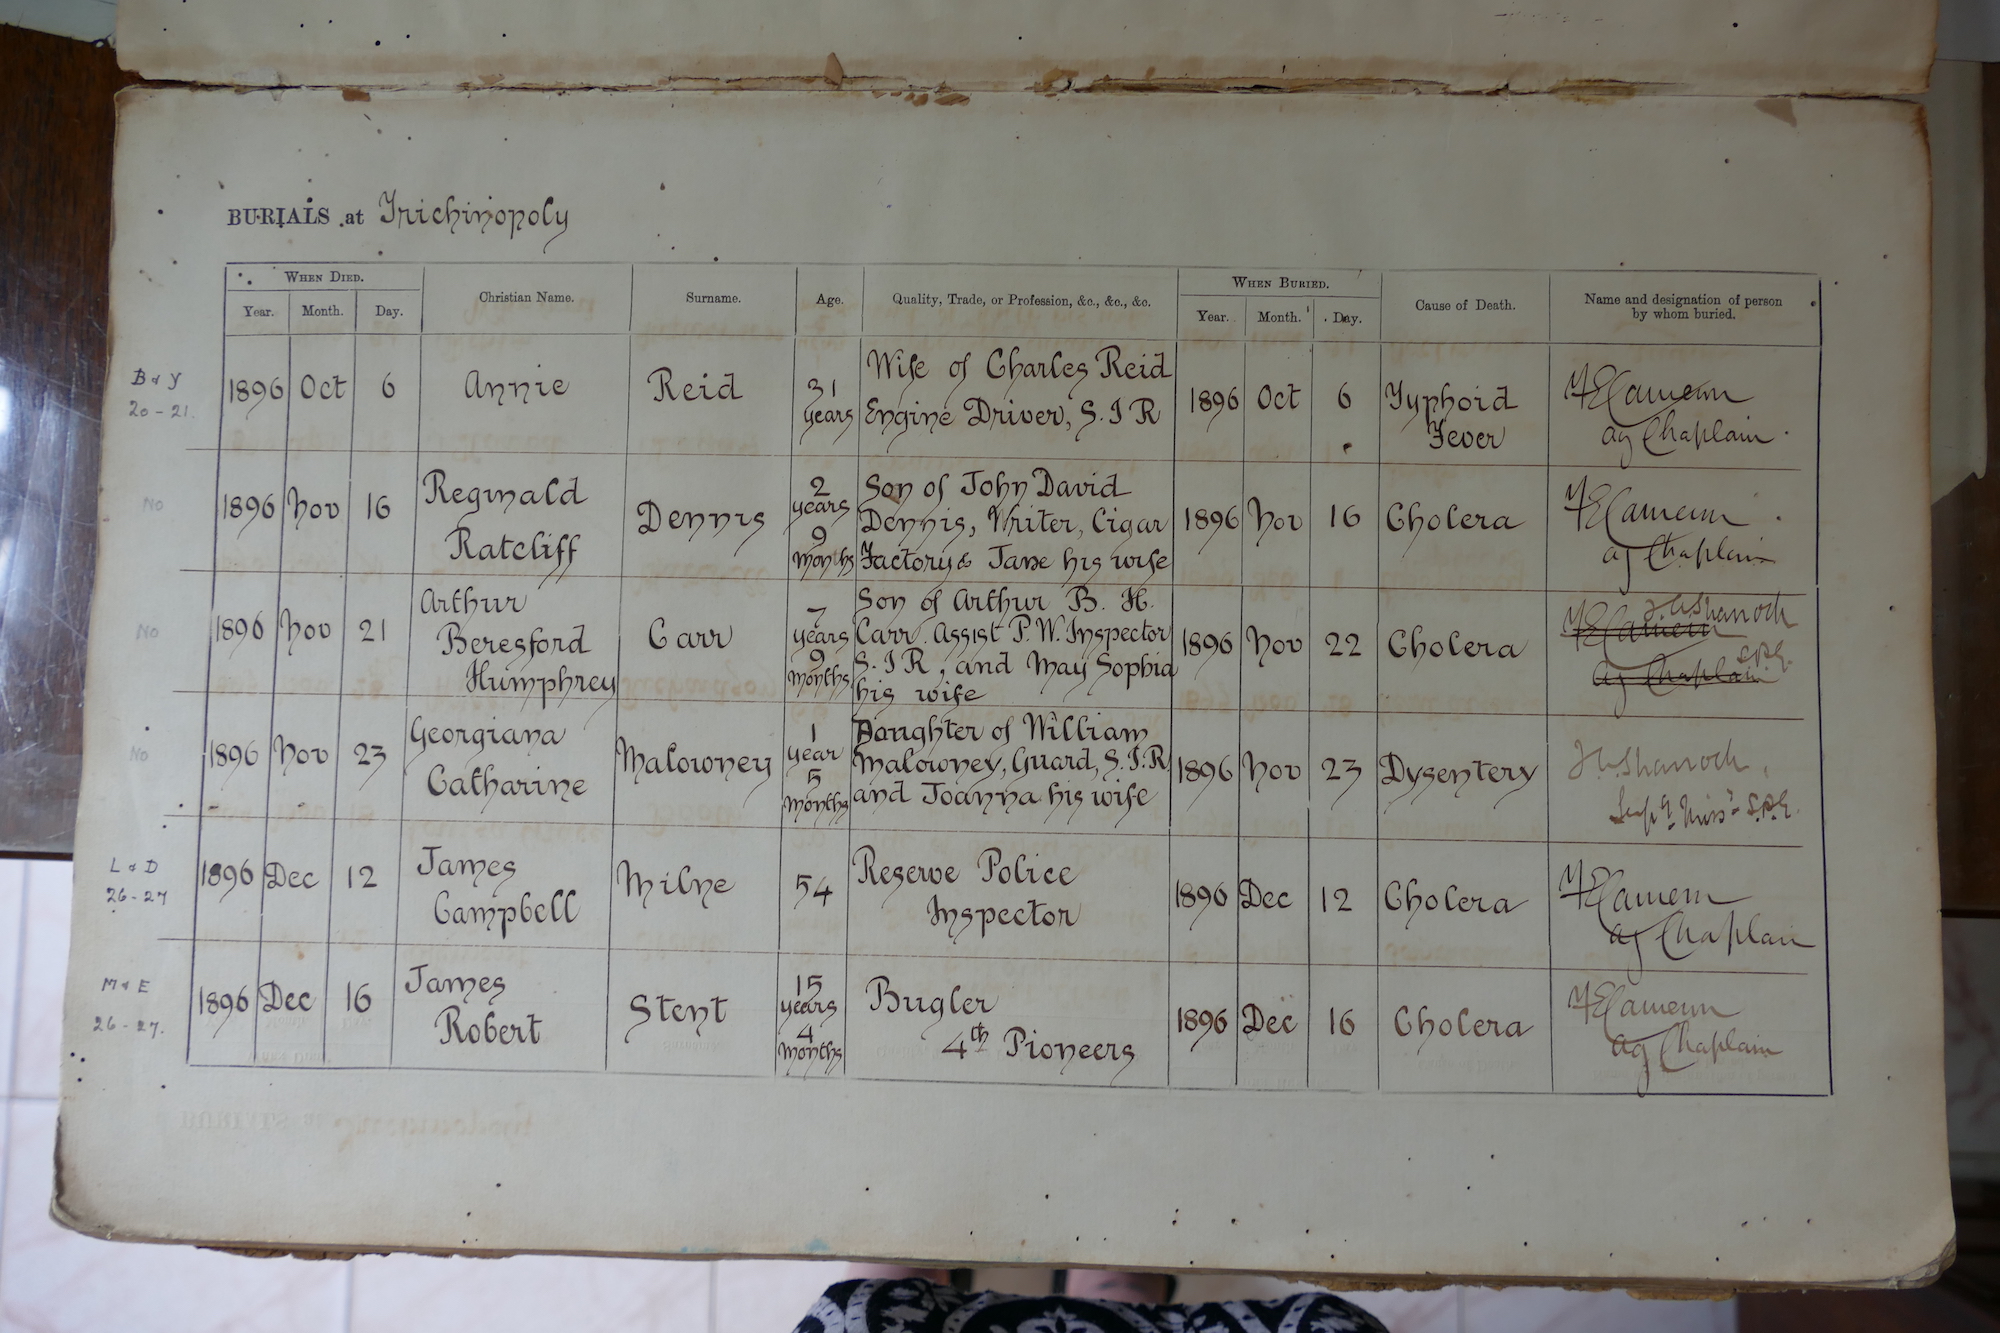 BURIALS at Trichinopoly
WHEN DIED.
WHEN BURIED.
Year. Month. Day. Christian Name. Surname. Age. Quality, Trade, or Profession, &c., &c., &c. Year. Month. Day. Cause of Death. Name and designation of person
by whom buried.
B & Y
20 - 21.
1896 Oct 6 Annie Reid 31
years
Wife of Charles Reid
Engine Driver, S. I R
1896 Oct 6 Typhoid
Fever
Cameron
ag Chaplain
No
1896 Nov 16 Reginald
Ratcliff
Dennis
2
years
9
months
Son of John David
Dennis, Writer, Cigar
Factory & Jane his wife
1896 Nov 16 Cholera
Cameron
ag Chaplain
No
1896 Nov 21 Arthur
Beresford
Humphrey
Carr
7
years
9
months
Son of Arthur B. H.
Carr. Assist P. W. Inspector
S. I R, and May Sophia
his wife
1896 Nov 22 Cholera
Cameron
ag Chaplain
S.P.G.
No
1896 Nov 23 Georgiana
Catharine
Malowney
1
year
5
months
Daughter of William
Malowney, Guard, S. I. R
and Joanna his wife
1896 Nov 23 Dysentery
S.P.G.
L & D
26 - 27
1896 Dec 12 James
Campbell
Milne
54
Reserve Police
Inspector
1896 Dec 12 Cholera
Cameron
ag Chaplain
M & E
26 - 27.
1896 Dec 16 James
Robert
Stent
15
years
4
months
Bugler
4th Pioneers
1896 Dec 16 Cholera
Cameron
ag Chaplain